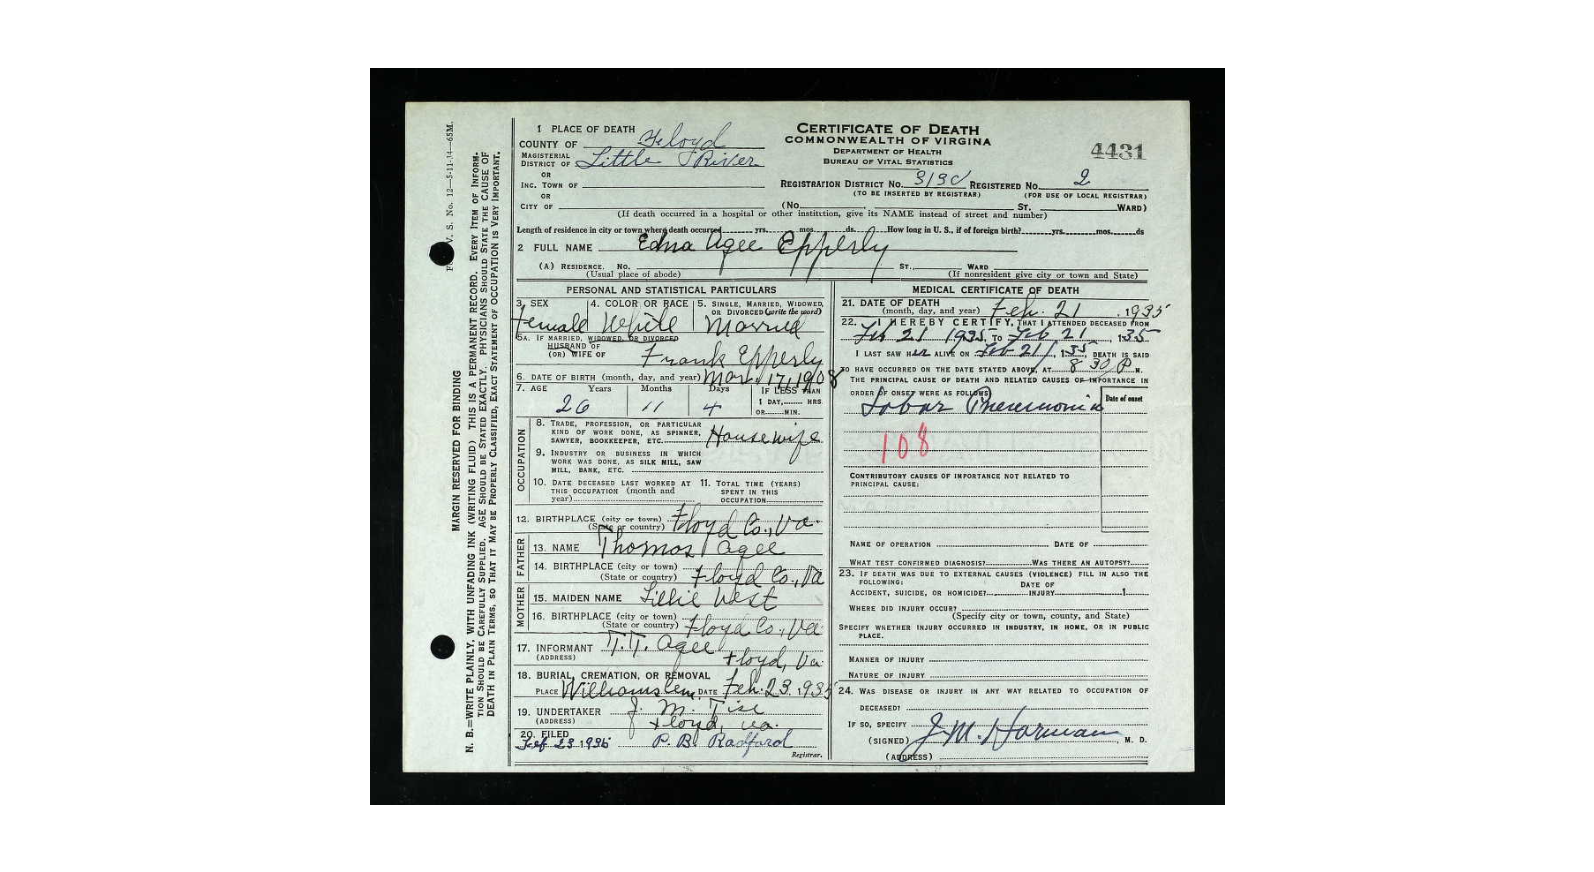 V. S. No. 12—5-11-34—65M.
MARGIN RESERVED FOR BINDING
N. B.—WRITE PLAINLY, WITH UNFADING INK (WRITING FLUID) THIS IS A PERMANENT RECORD. EVERY ITEM OF INFORM-
TION SHOULD BE CAREFULLY SUPPLIED. AGE SHOULD BE STATED EXACTLY. PHYSICIANS SHOULD STATE THE CAUSE OF
DEATH IN PLAIN TERMS, SO THAT IT MAY BE PROPERLY CLASSIFIED. EXACT STATEMENT OF OCCUPATION IS VERY IMPORTANT.
CERTIFICATE OF DEATH
COMMONWEALTH OF VIRGINIA
DEPARTMENT OF HEALTH
BUREAU OF VITAL STATISTICS
4431
1 PLACE OF DEATH
COUNTY OF Floyd
MAGISTERIAL DISTRICT OF Little River
OR
INC. TOWN OF
OR
CITY OF
REGISTRATION DISTRICT No. 313C REGISTERED No. 2
(TO BE INSERTED BY REGISTRAR) (FOR USE OF LOCAL REGISTRAR)
(No. , ST. WARD)
(If death occurred in a hospital or other institution, give its NAME instead of street and number)
Length of residence in city or town where death occurred yrs. mos. ds. How long in U. S., if of foreign birth? yrs. mos. ds
2 FULL NAME Edna Agee Epperly
(A) RESIDENCE. No. ST. WARD
(Usual place of abode) (If nonresident give city or town and State)
PERSONAL AND STATISTICAL PARTICULARS
3. SEX 4. COLOR OR RACE 5. SINGLE, MARRIED, WIDOWED, OR DIVORCED (write the word)
Female White Married
5A. IF MARRIED, WIDOWED, OR DIVORCED
HUSBAND OF
(OR) WIFE OF Frank Epperly
6. DATE OF BIRTH (month, day, and year) Mar. 17, 1908
7. AGE Years Months Days IF LESS THAN
1 DAY, HRS
OR MIN.
26 11 4
OCCUPATION
8. TRADE, PROFESSION, OR PARTICULAR
KIND OF WORK DONE, AS SPINNER,
SAWYER, BOOKKEEPER, ETC. Housewife
9. INDUSTRY OR BUSINESS IN WHICH
WORK WAS DONE, AS SILK MILL, SAW
MILL, BANK, ETC.
10. DATE DECEASED LAST WORKED AT
THIS OCCUPATION (month and
year)
11. TOTAL TIME (YEARS)
SPENT IN THIS
OCCUPATION
12. BIRTHPLACE (city or town)
(State or country) Floyd Co., Va.
FATHER
13. NAME Thomas Agee
14. BIRTHPLACE (city or town)
(State or country) Floyd Co., Va
MOTHER
15. MAIDEN NAME Lillie West
16. BIRTHPLACE (city or town)
(State or country) Floyd Co., Va
17. INFORMANT T. T. Agee
(ADDRESS) Floyd, Va.
18. BURIAL, CREMATION, OR REMOVAL
PLACE Williams Cem DATE Feb. 23, 1935
19. UNDERTAKER J. M. Tise
(ADDRESS) Floyd, Va.
20. FILED
Feb 23 1935 P. B. Radford
Registrar.
MEDICAL CERTIFICATE OF DEATH
21. DATE OF DEATH
(month, day, and year) Feb. 21, 1935
22. I HEREBY CERTIFY, THAT I ATTENDED DECEASED FROM
Feb 21 1935, TO Feb 21, 1935
I LAST SAW HER ALIVE ON Feb 21, 1935, DEATH IS SAID
TO HAVE OCCURRED ON THE DATE STATED ABOVE, AT 8 30 P M.
THE PRINCIPAL CAUSE OF DEATH AND RELATED CAUSES OF IMPORTANCE IN
ORDER OF ONSET WERE AS FOLLOWS:
Date of onset
Lobar Pneumonia
108
CONTRIBUTORY CAUSES OF IMPORTANCE NOT RELATED TO
PRINCIPAL CAUSE:
NAME OF OPERATION DATE OF
WHAT TEST CONFIRMED DIAGNOSIS? WAS THERE AN AUTOPSY?
23. IF DEATH WAS DUE TO EXTERNAL CAUSES (VIOLENCE) FILL IN ALSO THE
FOLLOWING:
ACCIDENT, SUICIDE, OR HOMICIDE? DATE OF INJURY 1
WHERE DID INJURY OCCUR?
(Specify city or town, county, and State)
SPECIFY WHETHER INJURY OCCURRED IN INDUSTRY, IN HOME, OR IN PUBLIC
PLACE.
MANNER OF INJURY
NATURE OF INJURY
24. WAS DISEASE OR INJURY IN ANY WAY RELATED TO OCCUPATION OF
DECEASED?
IF SO, SPECIFY
(SIGNED) J. M. Harman, M. D.
(ADDRESS)